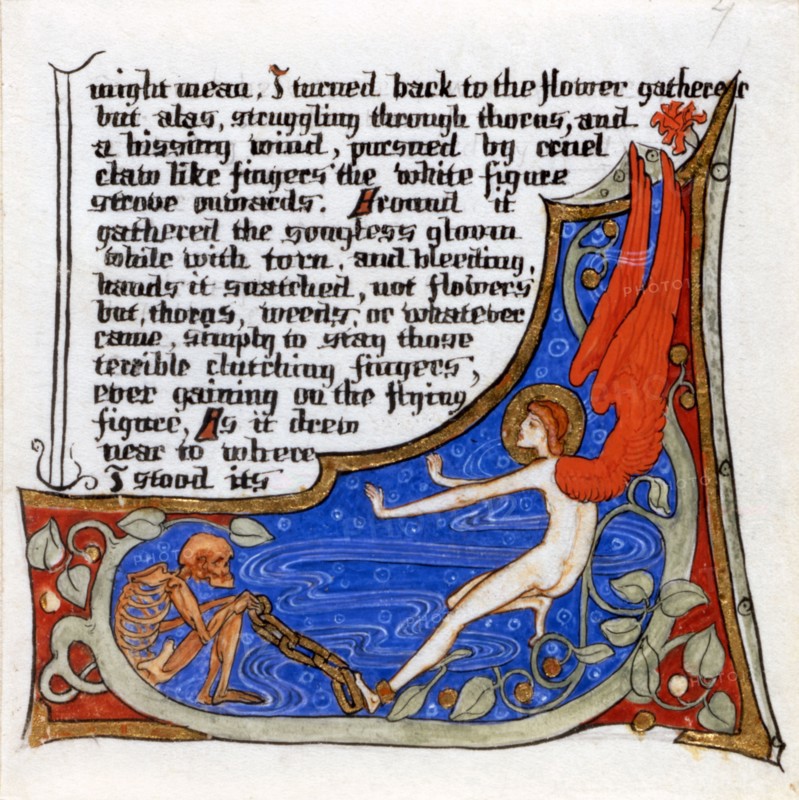 might mean, I turned back to the flower gatherer
but alas, struggling through thorns, and
a hissing wind, pursued by cruel
claw like fingers the white figure
strove onwards. Around it
gathered the songless gloom
while with torn, and bleeding,
hands it snatched, not flowers
but, thorns, weeds, or whatever
came, simply to stay those
terrible clutching fingers,
ever gaining on the flying
figure, As it drew
near to where
I stood its